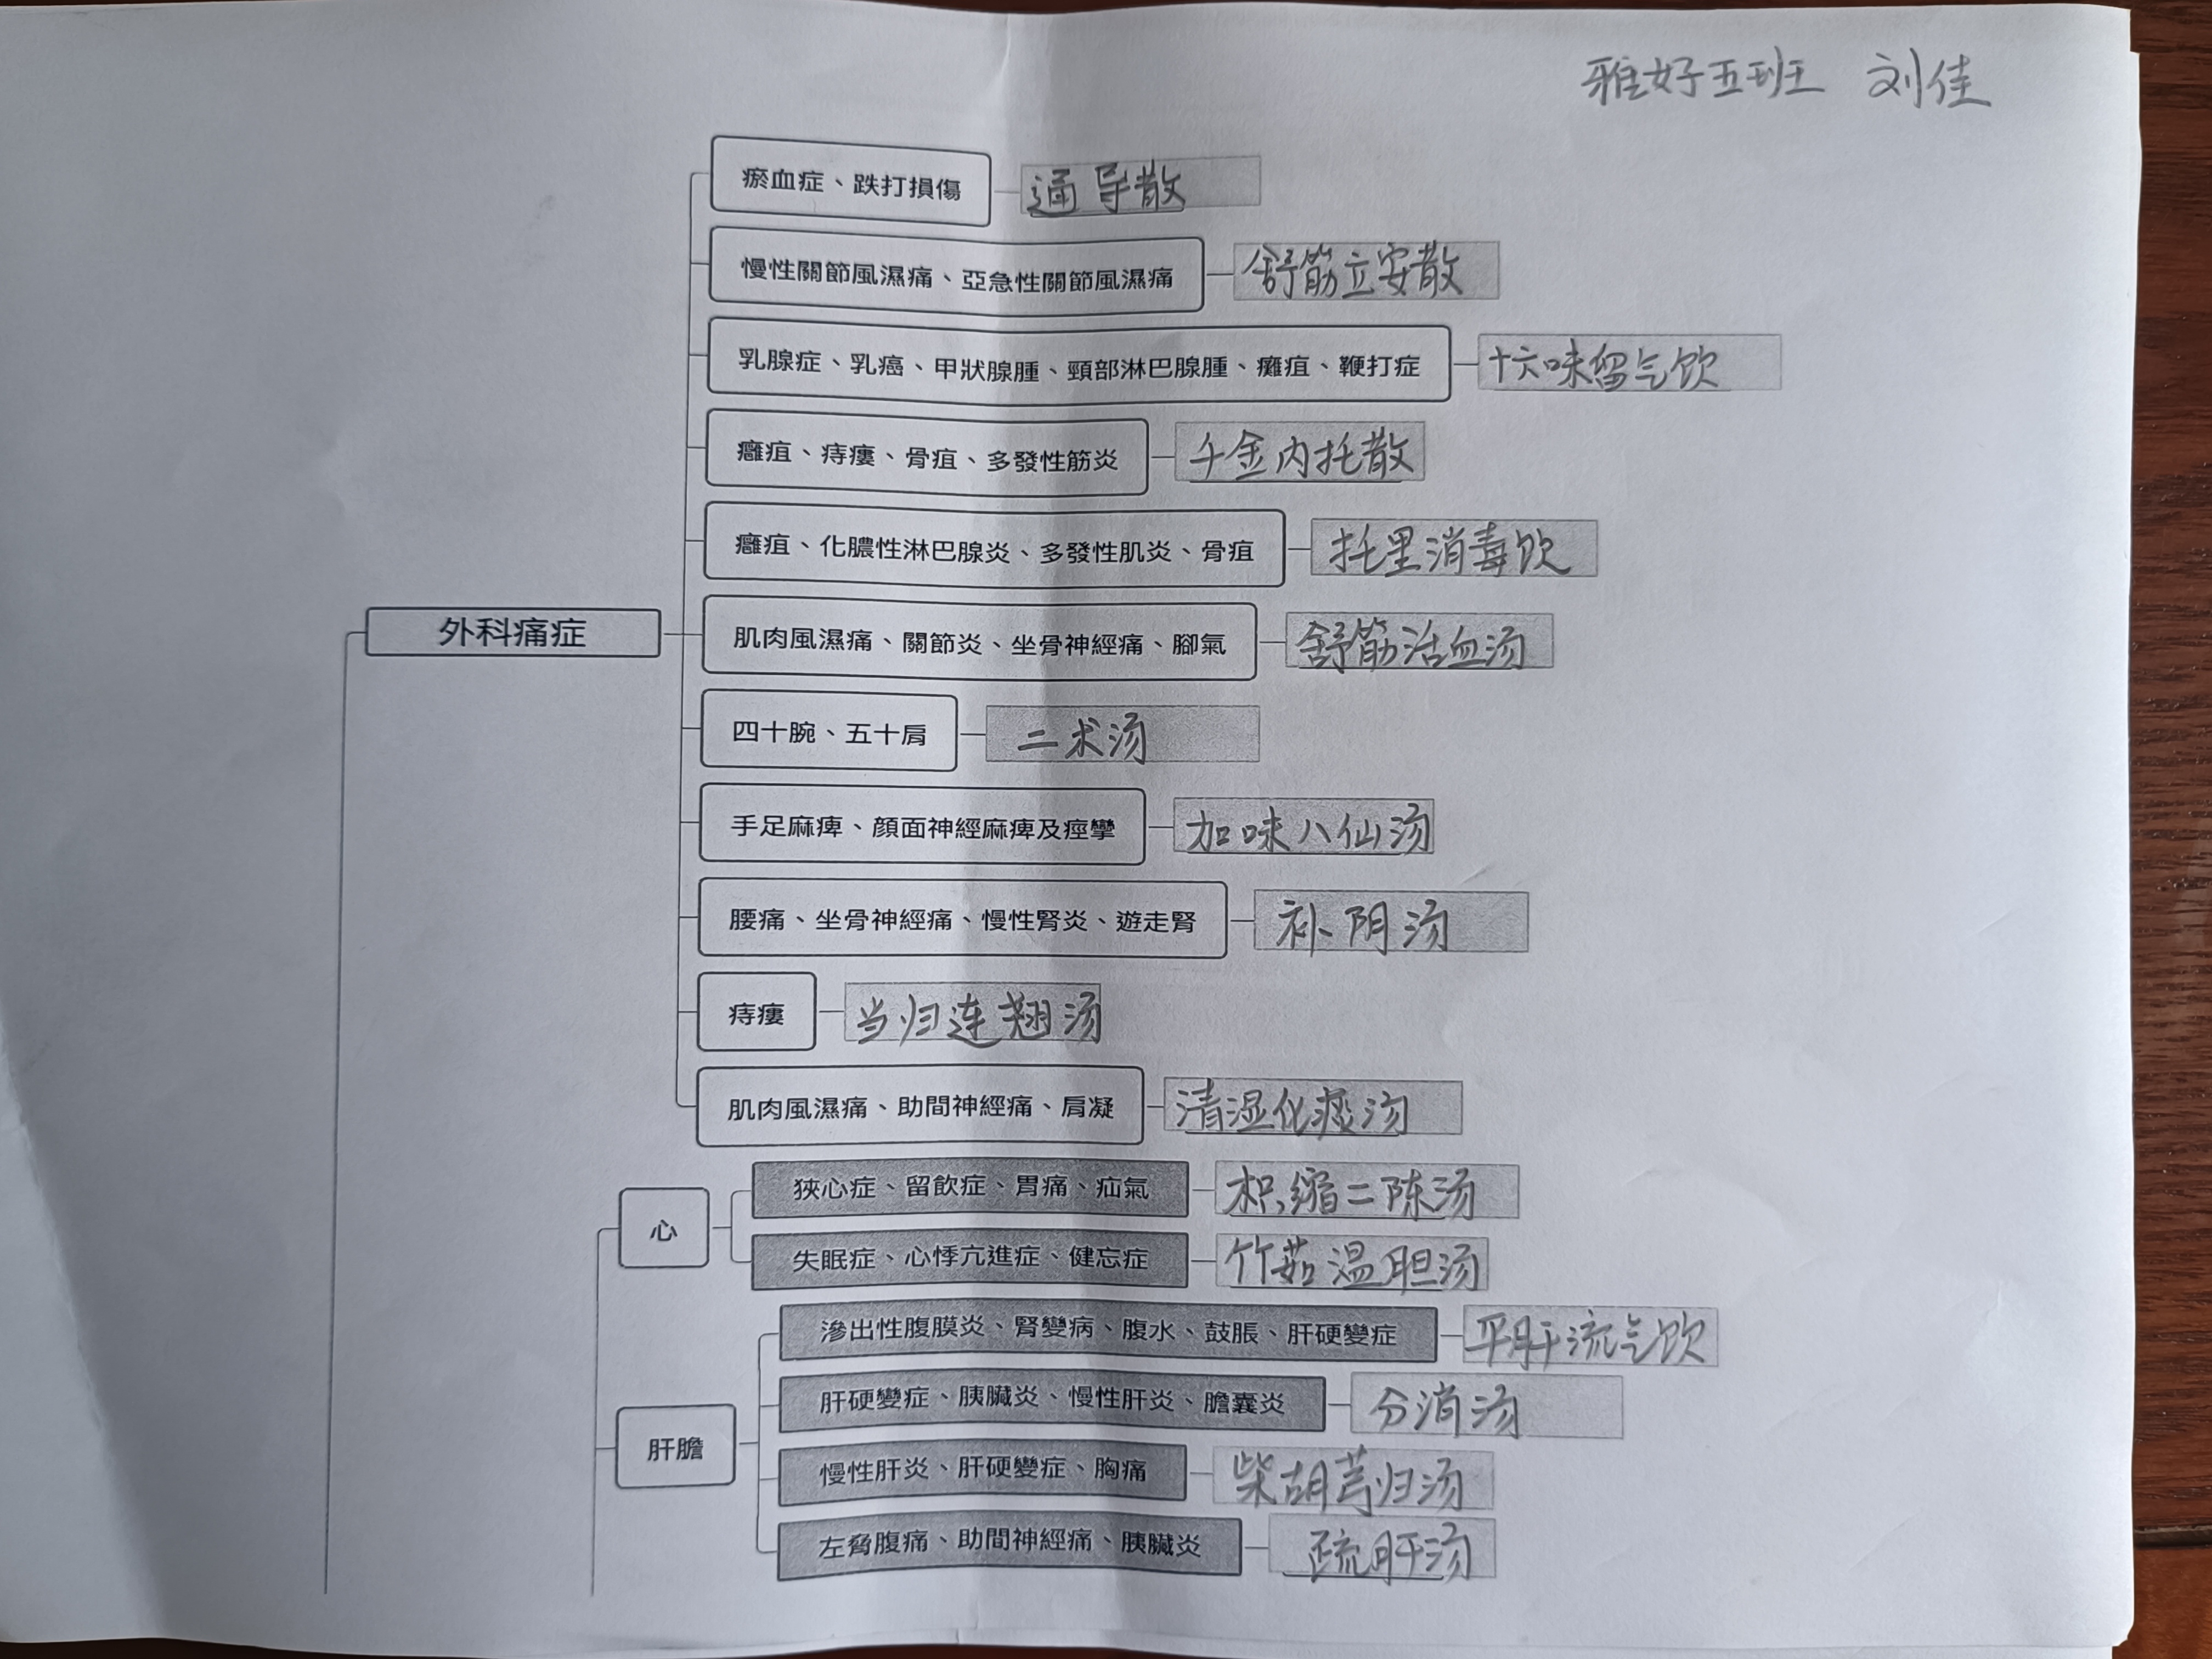 雅好五班 刘佳
瘀血症、跌打損傷 通导散
慢性關節風濕痛、亞急性關節風濕痛 舒筋立安散
乳腺症、乳癌、甲狀腺腫、頸部淋巴腺腫、癰疽、鞭打症 十六味留气饮
癰疽、痔瘻、骨疽、多發性筋炎 千金内托散
癰疽、化膿性淋巴腺炎、多發性肌炎、骨疽 托里消毒饮
外科痛症
肌肉風濕痛、關節炎、坐骨神經痛、腳氣 舒筋活血汤
四十腕、五十肩 二术汤
手足麻痺、顏面神經麻痺及痙攣 加味八仙汤
腰痛、坐骨神經痛、慢性腎炎、遊走腎 补阴汤
痔瘻 当归连翘汤
肌肉風濕痛、助間神經痛、肩凝 清湿化痰汤
心
狹心症、留飲症、胃痛、疝氣 枳缩二陈汤
失眠症、心悸亢進症、健忘症 竹茹温胆汤
肝膽
滲出性腹膜炎、腎變病、腹水、鼓脹、肝硬變症 平肝流气饮
肝硬變症、胰臟炎、慢性肝炎、膽囊炎 分消汤
慢性肝炎、肝硬變症、胸痛 柴胡芎归汤
左脅腹痛、助間神經痛、胰臟炎 疏肝汤